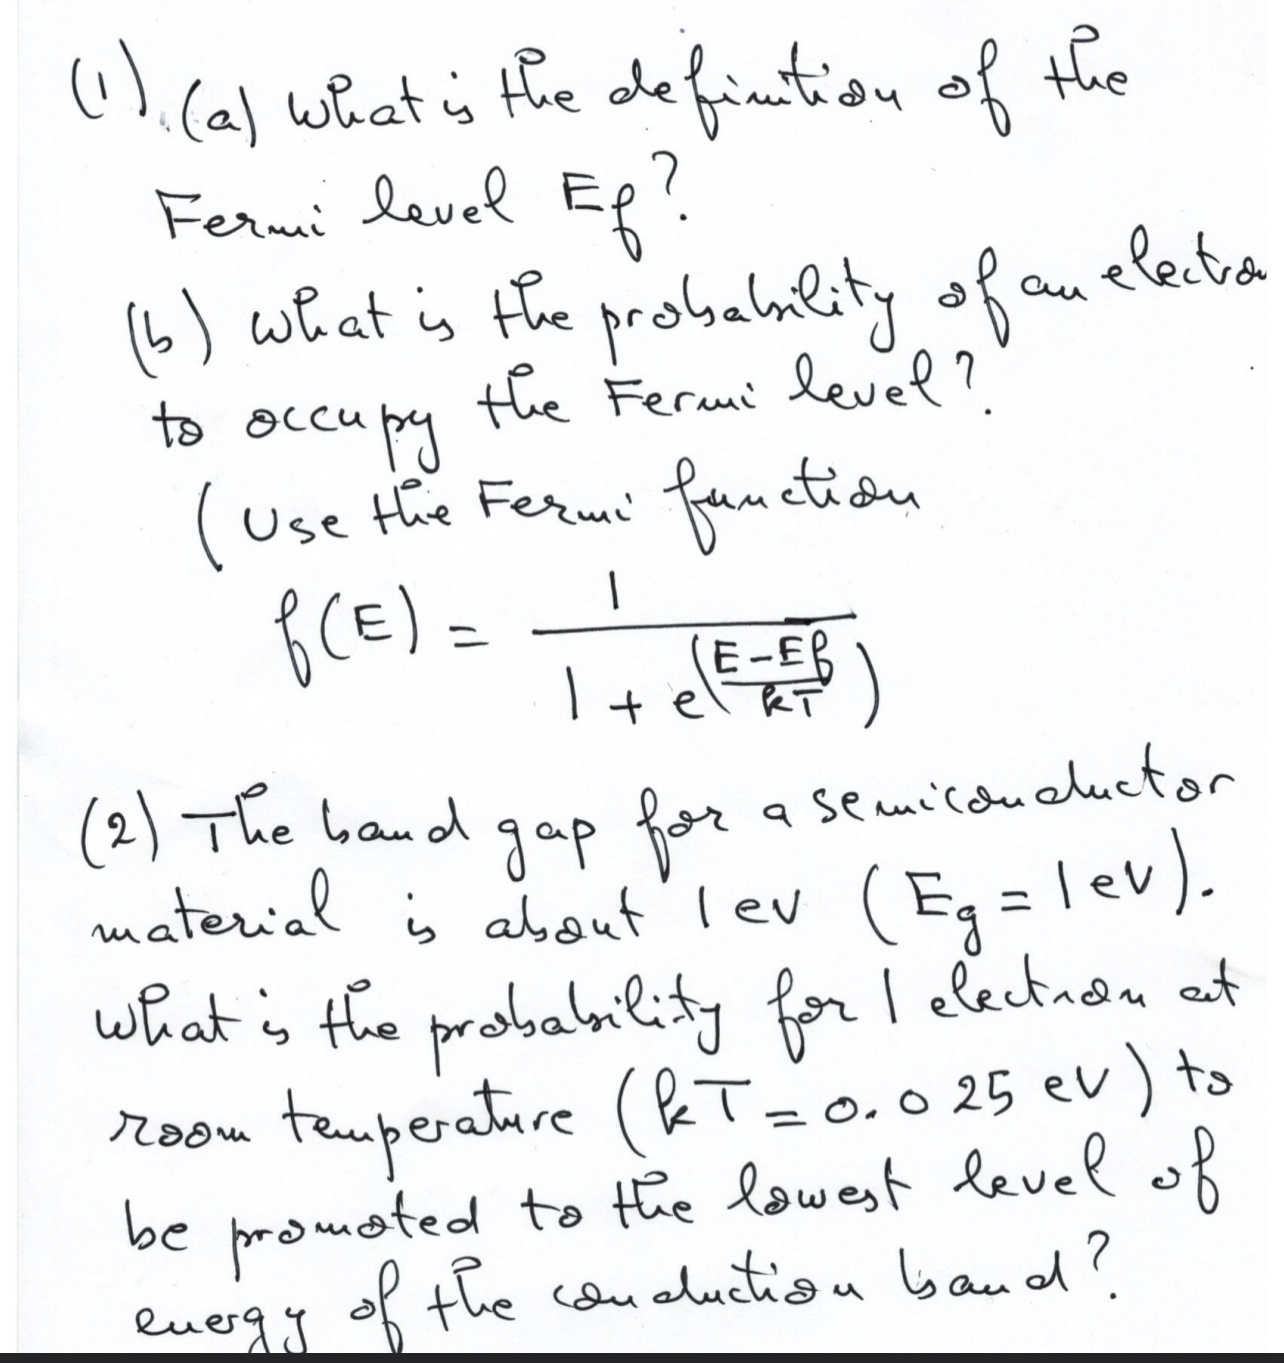 (1) (a) What is the definition of the
Fermi level Ef?
(b) What is the probability of an electron
to occupy the Fermi level?
(Use the Fermi function
f(E) = 1 / (1 + e^((E-Ef)/kT))
(2) The band gap for a semiconductor
material is about 1 ev (Eg = 1 ev).
What is the probability for 1 electron at
room temperature (kT = 0.025 eV) to
be promoted to the lowest level of
energy of the conduction band?